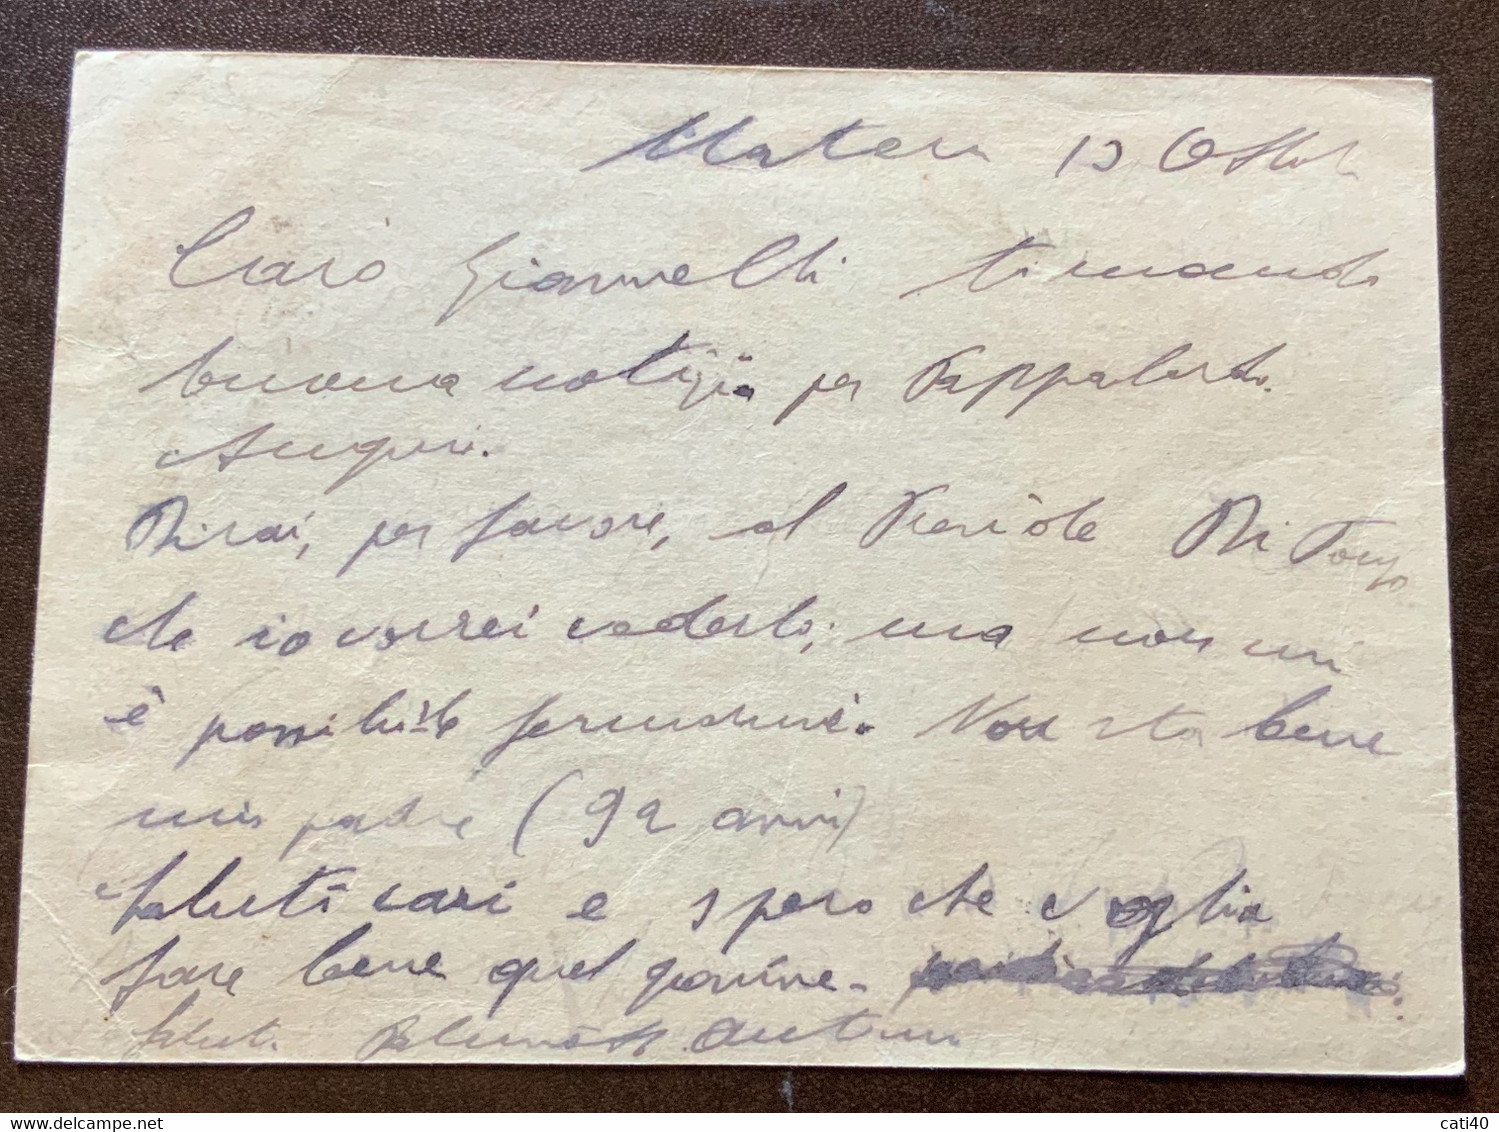 Matera 13 Ottob
Caro Giannelli ti mando
buona notizia per Pappalardo.
Auguri.
Dirai, per favore, al Di
che io vorrei vederlo; ma non mi
è possibile Non sta bene
mio padre (92 anni)
Saluti cari e spero che voglia
fare bene quel giovine.
Saluti
cati40